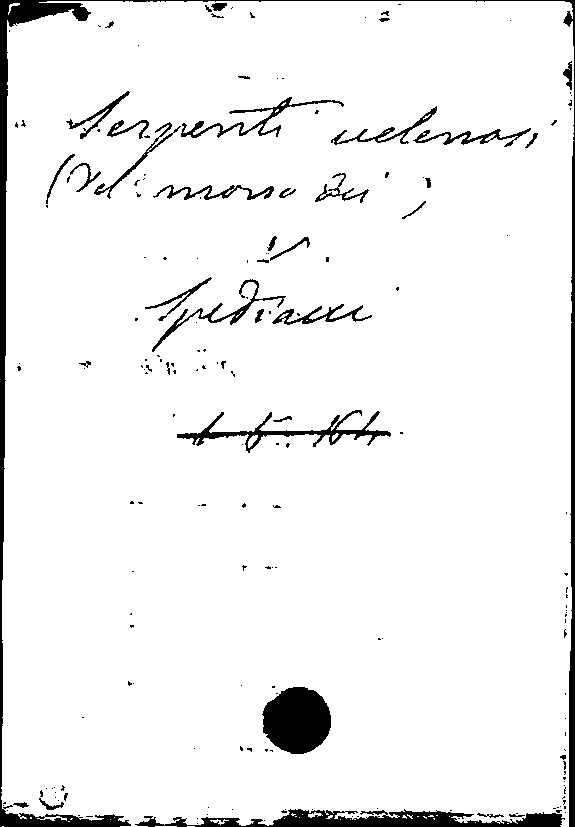 Serpenti velenosi
(Del morso dei)
V
Spediacci
1. 5. 164